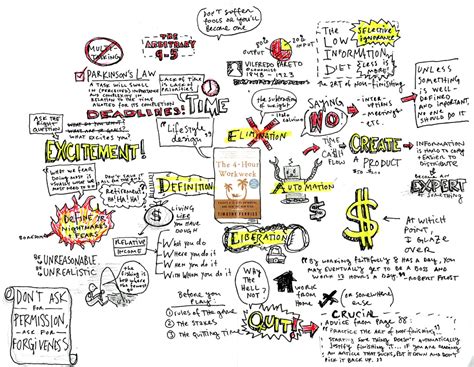 DON'T SUFFER
FOOLS OR YOU'LL
BECOME ONE
MULTI-
TASKING
THE
ARBITRARY
9-5
80%
OUTPUT
20%
INPUT
VILFREDO PARETO
ECONOMIST
1848 - 1923
THE
LOW
INFORMATION
DIET
SELECTIVE
IGNORANCE
LESS IS
MORE
THE ART OF NON-FINISHING
PARKINSON'S LAW
A TASK WILL SWELL
IN (PERCEIVED) IMPORTANCE
AND COMPLEXITY
IN RELATION TO THE TIME
ALLOTTED FOR ITS COMPLETION
DEADLINES!
LACK OF TIME
IS LACK OF
PRIORITIES
TIME
UNLESS
SOMETHING
IS WELL-
DEFINED AND
IMPORTANT
NO ONE
SHOULD
DO IT
SAYING
NO
INTERR-
UPTIONS
MEETINGS
ETC.
ASK THE
RIGHT
QUESTION
WHAT DO YOU WANT?
WHAT ARE YR GOALS?
WHAT EXCITES YOU?
EXCITEMENT!
LIFESTYLE
DESIGN
ELIMINATION
TIME
CASH
FLOW
CREATE
A
PRODUCT
$50-200
INFORMATION
IS HARD TO
COPY +
EASIER TO
DISTRIBUTE
BECOME
AN
EXPERT
IN SOMETHING
WHAT WE FEAR
DOING MOST IS
USUALLY WHAT WE
MOST NEED TO DO
RETIREMENT?
HA! HA! HA!
DEFINITION
The 4-Hour
Workweek
TIMOTHY FERRISS
AUTOMATION
DEFINE YR
NIGHTMARES
+ FEARS
BOREDOM
LIVING
LIKE YOU
HAVE
DOUGH
$
LIBERATION
$
AT WHICH
POINT,
I GLAZE
OVER
BE UNREASONABLE.
BE UNREALISTIC
RELATIVE
INCOME
WHAT YOU DO
WHERE YOU DO IT
WHEN YOU DO IT
WITH WHOM YOU DO IT
THE FISHING IS
BEST WHERE THE
FEWEST GO
"BY WORKING FAITHFULLY 8 HRS A DAY, YOU
MAY EVENTUALLY GET TO BE A BOSS AND
WORK 12 HOURS A DAY" - ROBERT FROST
WHY
THE
HELL
NOT?
WORK
FROM
HOME
(OR SOMEWHERE
ELSE)
DON'T ASK
FOR
PERMISSION,
ASK FOR
FORGIVENESS
BEFORE YOU
PLAY:
RULES OF THE GAME
THE STAKES
THE QUITTING TIME
QUIT!
CRUCIAL
ADVICE FROM PAGE 88:
"PRACTICE THE ART OF NON-FINISHING...
STARTING SOMETHING DOESN'T AUTOMATICALLY
JUSTIFY FINISHING IT... IF YOU ARE READING
AN ARTICLE THAT SUCKS, PUT IT DOWN AND DON'T
PICK IT BACK UP."